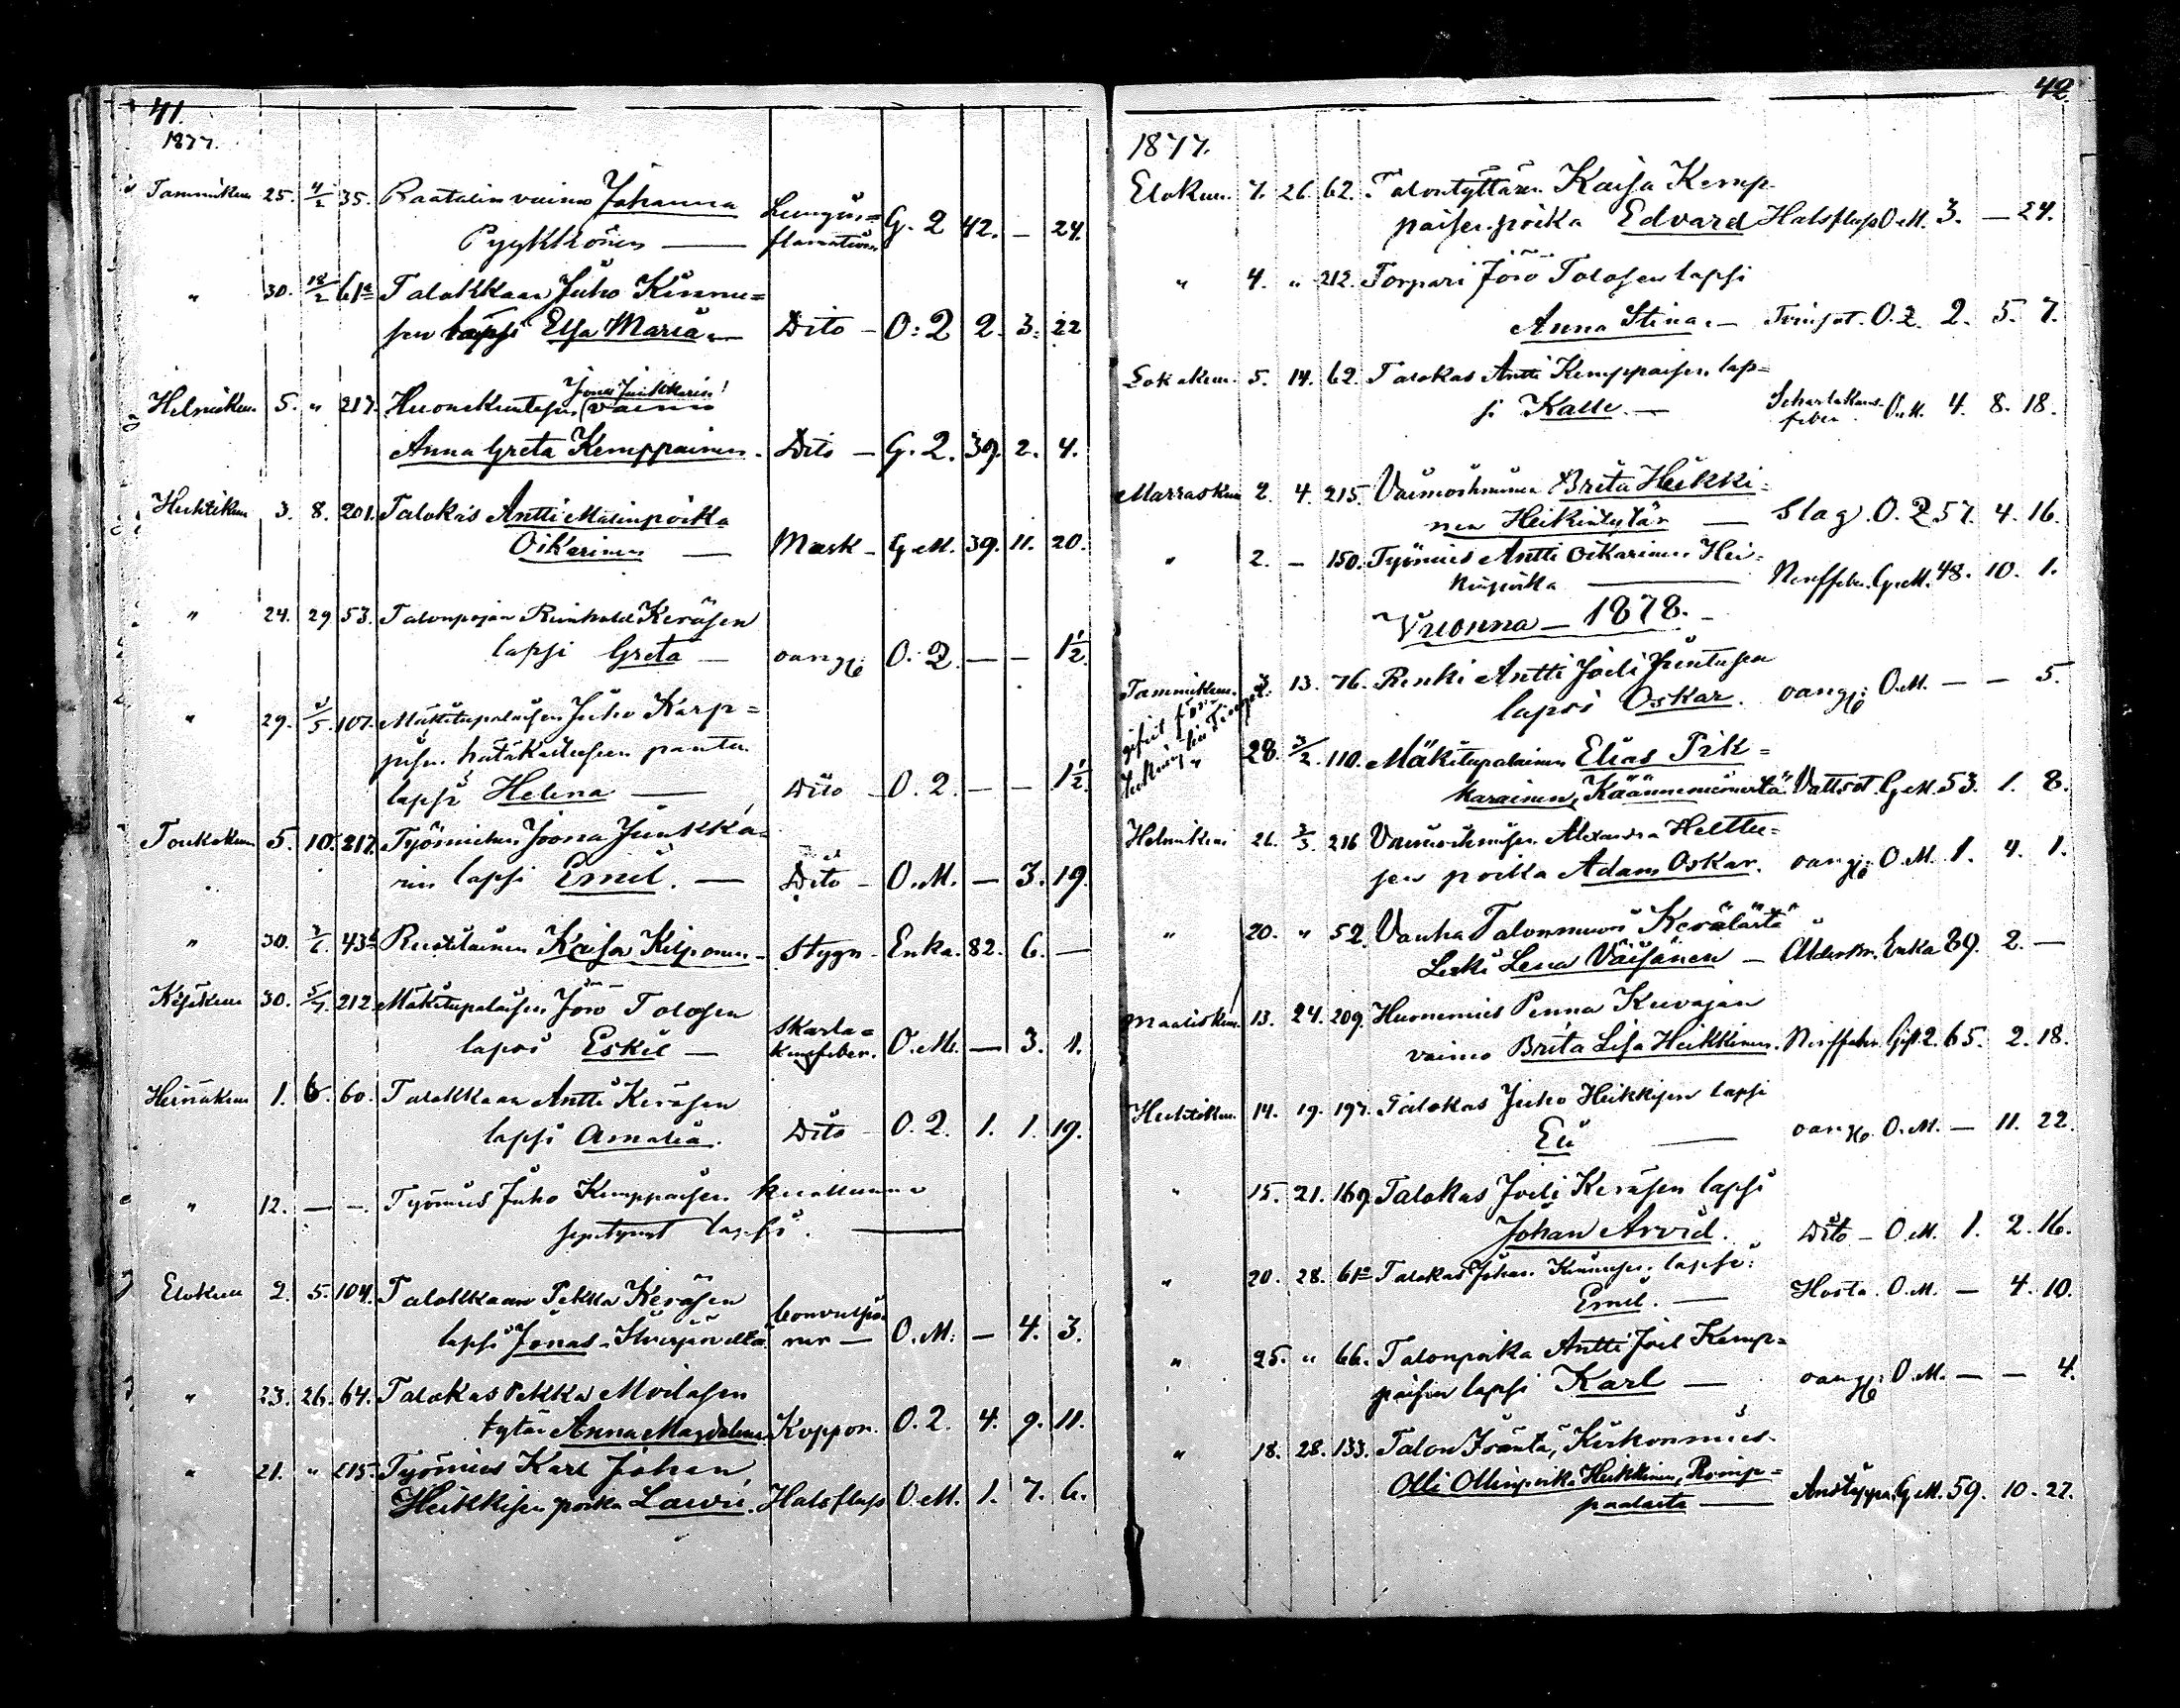 41.
1877.
Tammikuu 25. 4/2 35. Raatalin vaimo Johanna
Pyykkönen — Lungin=flamation G. 2 42. — 24.
" 30. 18/2 61a Talokkaan Juho Kinnu=
sen lapsi Elsa Maria — Dito — O. 2 2. 3. 22
Helmikuu 5. " 217. Huonekuntasen (Jonas Junkkarin) vaimo
Anna Greta Kemppainen. Dito — G. 2. 39. 2. 4.
Huhtikuu 3. 8. 201. Talokas Antti Matinpoika
Oikarinen — Mask — G. M. 39. 11. 20.
" 24. 29 53. Talonpojan Reinhold Keräsen
lapsi Greta — oang. O. 2. — — 1 1/2.
" 29. /5. 107. Mäkitupalaisen Juho Karp=
pisen hätäkastetun
lapsi Helena — Dito — O. 2. — — 1 1/2.
Toukokuu 5. 10. 217. Työmiehen Joona Junkka=
rin lapsi Emil. — Dito — O. M. — 3. 19.
" 30. 43 Ruotilainen Kaisa Kilponen — Stygn — Enka. 82. 6. —
Kesäkuu 30. 5/7. 212 Mäkitupalaisen Jörö Tolosen
lapsi Eskil — Skarla=kansfeber. O. M. — 3. 1.
Heinäkuu 1. 6. 60. Talokkaan Antti Keräsen
lapsi Amalia. Dito — O. 2. 1. 1. 19.
" 12. — — Työmies Juho Kemppaisen kuollunna
syntynyt lapsi. —
Elokuu 2. 5. 104. Talokkaan Pekka Keräsen
lapsi Jonas. Convulsio=ner — O. M. — 4. 3.
" 23. 26. 64. Talokas Pekka Moilasen
tytär Anna Magdalena. Koppor. O. 2. 4. 9. 11.
" 21. " 215. Työmies Karl Johan
Heikkisen poika Lauri. Halsfluss O. M. 1. 7. 6.
42.
1877.
Elokuu. 7. 26. 62. Talontyttären Kaisa Kemp
paisen poika Edvard Halsfluss O. M. 3. — 24.
" 4. " 212. Torpari Jörö Tolosen lapsi
Anna Stina. — Tvinsot. O. 2. 2. 5. 7.
Lokakuu. 5. 14. 62. Talokas Antti Kemppaisen lap=
si Kalle. — Scharlakans-feber. O. M. 4. 8. 18.
Marraskuu 2. 4. 215. Vaimoihminen Brita Heikki=
nen Heikintytär — Slag. O. 2 57. 4. 16.
" 2. — 150. Työmies Antti Oikarinen Hei=
kinpoika — Nerffeber. G. M. 48. 10. 1.
Vuonna — 1878. —
Tammikuu. 2. 13. 76. Renki Antti Joeli Juntusen
lapsi Oskar. oang. O. M. — — 5.
" 28. 3/2. 110. Mäkitupalainen Elias Pik=
karainen, Käännemiemestä. Vattsot. G. M. 53. 1. 8.
Helmikuu 26. 3/3. 216 Vaimoihmisen Alexandra Helttu=
sen poika Adam Oskar. oang. O. M. 1. 4. 1.
" 20. " 52. Vanha Talonmuori Kerälästä
Leski Lena Väisänen — Ålderdom. Enka 89. 2. —
Maaliskuu. 13. 24. 209. Huonemies Penna Kuvajan
vaimo Brita Lisa Heikkinen. Nerffeber. Gift. 2. 65. 2. 18.
Huhtikuu. 14. 19. 197. Talokas Juho Heikkisen lapsi
Eli — oang. O. M. — 11. 22.
" 15. 21. 169. Talokas Joeli Keräsen lapsi
Johan Arvid. Dito — O. M. 1. 2. 16.
" 20. 28. 61a Talokas Johan Kinnusen lapsi
Emil. — Hosta. O. M. — 4. 10.
" 25. " 66. Talonpoika Antti Joel Kemp=
paisen lapsi Karl — oang. O. M. — — 4.
" 18. 28. 133. Talon Isäntä, Kirkonmies
Olli Ollinpoika Heikkinen, Romp=
palasta — Anstäppa. G. M. 59. 10. 27.